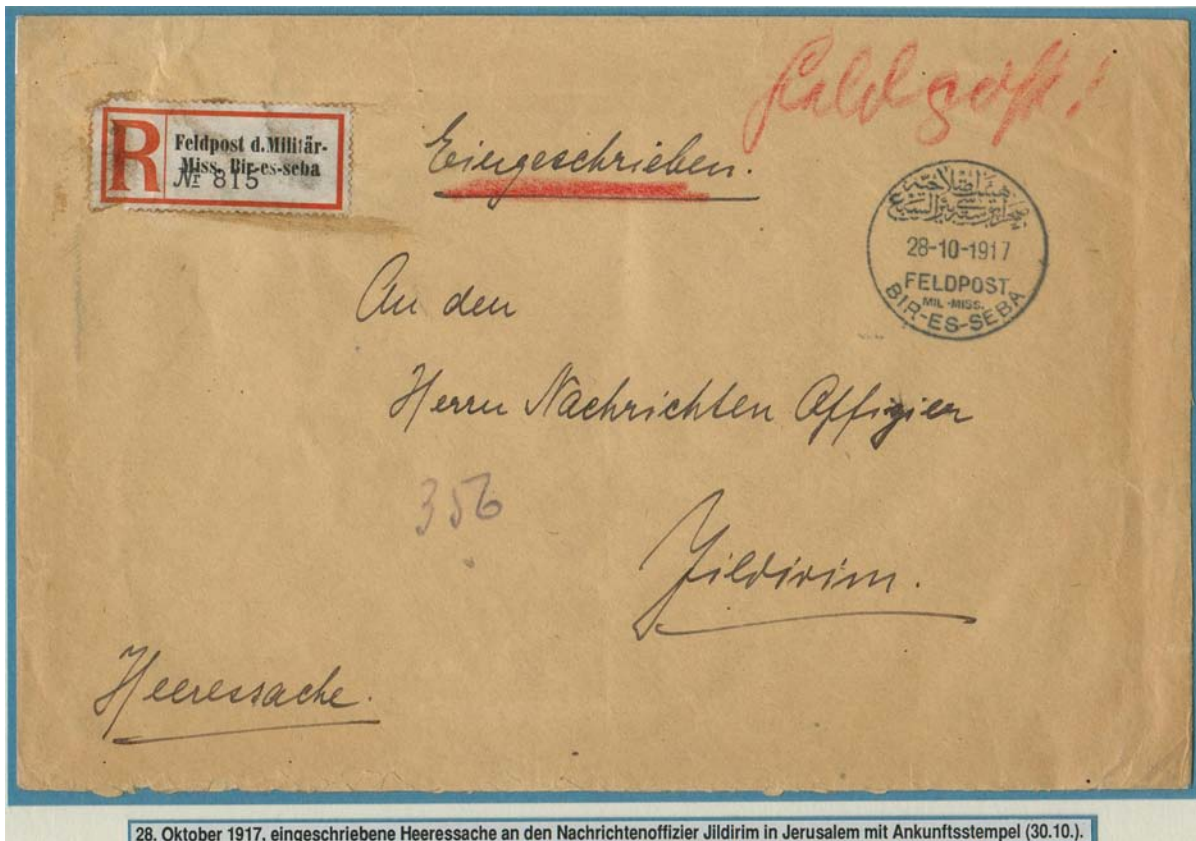 Feldpost!
R
Feldpost d.Militär-
Miss. Bir-es-seba
№ 815
Eingeschrieben.
28-10-1917
FELDPOST
MIL.-MISS.
BIR-ES-SEBA
An den
Herrn Nachrichten Offizier
356
Jildirim.
Heeressache.
28. Oktober 1917, eingeschriebene Heeressache an den Nachrichtenoffizier Jildirim in Jerusalem mit Ankunftsstempel (30.10.).